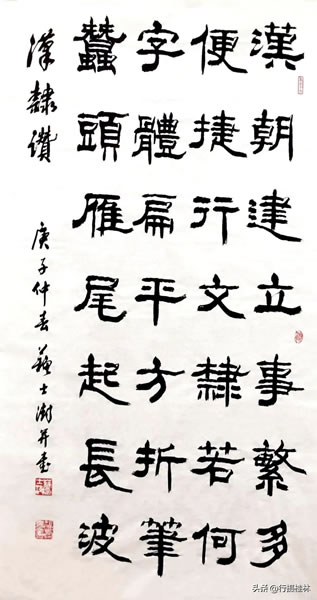 漢朝建立事繁多
便捷行文隸若何
字體扁平方折筆
蠶頭雁尾起長波
漢隸讚 庚子仲春 蘇士澍并書
头条 @行摄桂林